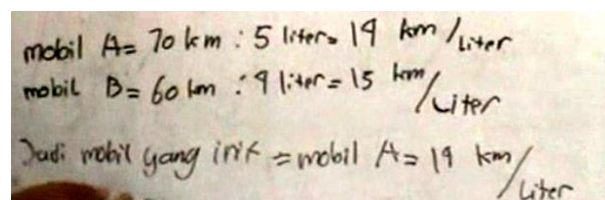 mobil A= 70 km : 5 liter= 14 km/Liter
mobil B= 60 km : 4 liter= 15 km/Liter
Jadi mobil yang irit = mobil A= 14 km/Liter